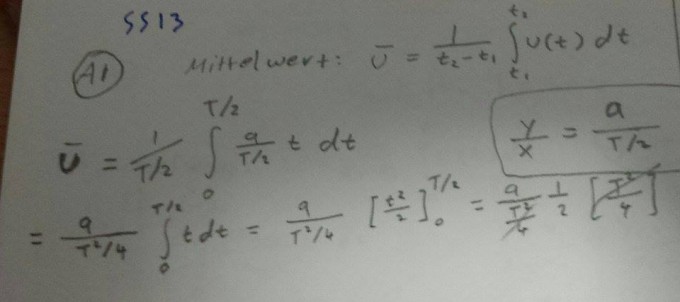 SS13
A1 Mittelwert: Ū = 1/(t₂-t₁) ∫_{t₁}^{t₂} U(t) dt
Ū = 1/(T/2) ∫_0^{T/2} a/(T/2) t dt
y/x = a/(T/2)
= a/(T²/4) ∫_0^{T/2} t dt = a/(T²/4) [t²/2]_0^{T/2} = a/(T²/4) 1/2 [T²/4]